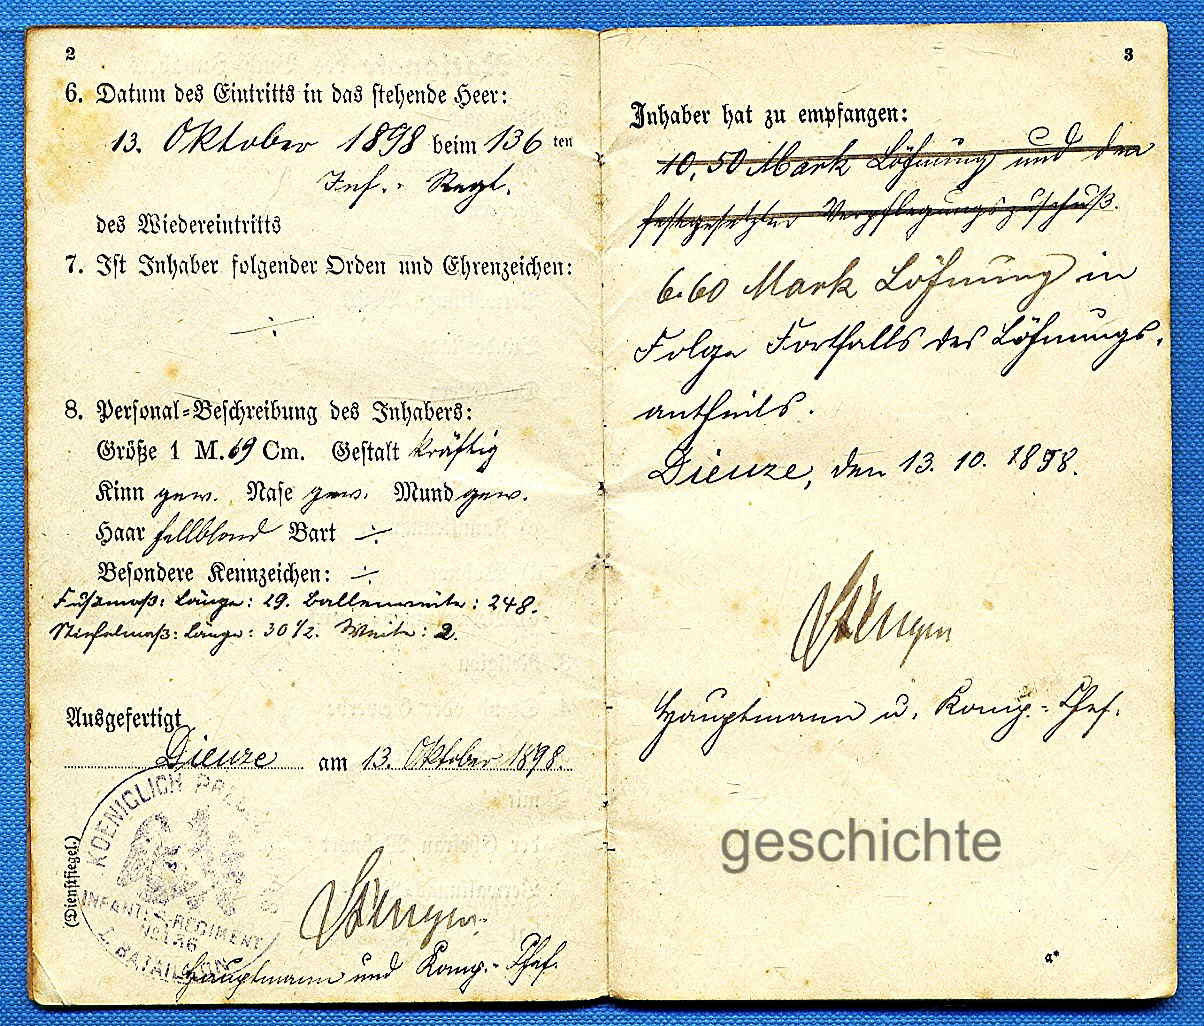 2
6. Datum des Eintritts in das stehende Heer:
13. Oktober 1898 beim 136 ten
Inf. - Regt.
des Wiedereintritts
7. Ist Inhaber folgender Orden und Ehrenzeichen:
÷
8. Personal-Beschreibung des Inhabers:
Größe 1 M. 69 Cm. Gestalt kräftig
Kinn gew. Nase gew. Mund gew.
Haar hellblond Bart ÷
Besondere Kennzeichen: ÷
Fußmaß: Länge: 29. Ballenweite: 248.
Stiefelmaß: Länge: 30 1/2. Weite: 2.
Ausgefertigt
Dieuze am 13. Oktober 1898.
(Dienstsiegel.)
KOENIGLICH
INFANT. - REGIMENT
No 136
BATAILLON
Hauptmann und Komp.- Chef.
3
Inhaber hat zu empfangen:
10,50 Mark Löhnung und den
festgesetzten Verpflegungszuschuß.
6.60 Mark Löhnung in
Folge Fortfalls des Löhnungs-
antheils.
Dieuze, den 13. 10. 1898.
Hauptmann u. Komp.- Chef.
geschichte